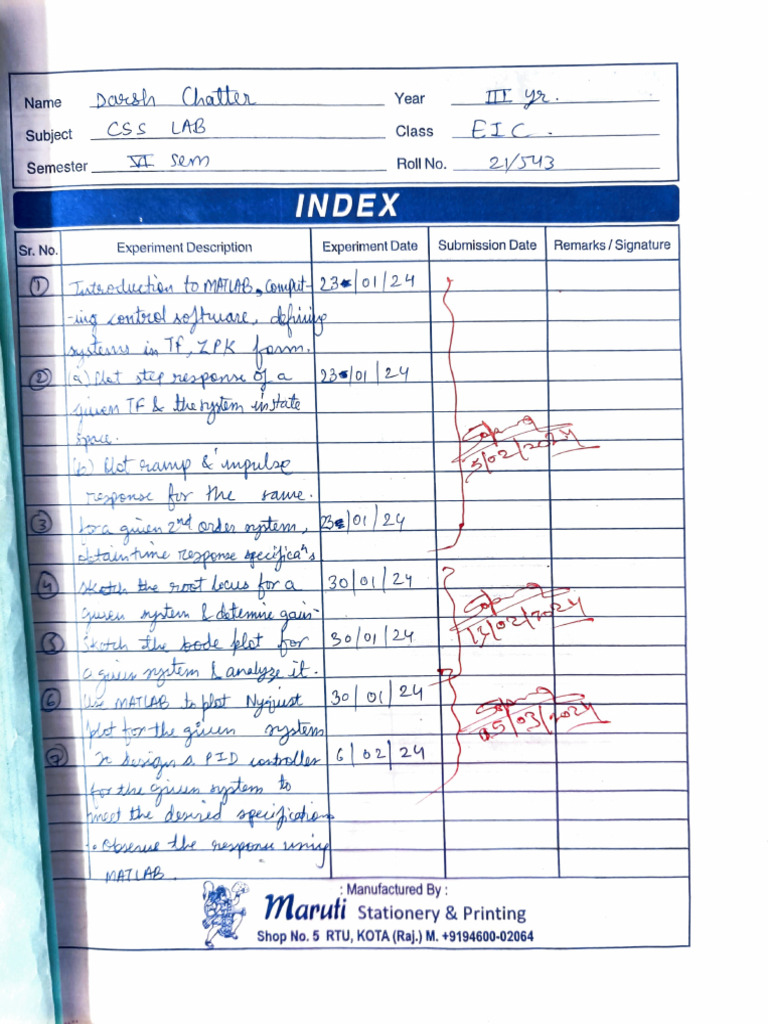 Name Darsh Chatter Year III yr.
Subject CSS LAB Class EIC.
Semester VI Sem Roll No. 21/543
INDEX
Sr. No. Experiment Description Experiment Date Submission Date Remarks / Signature
1 Introduction to MATLAB, comput- 23/01/24
-ing control software, defining
systems in TF, ZPK form.
2 (a) Plot step response of a 23/01/24
given TF & the system in state
space.
(b) Plot ramp & impulse
5/02/2024
response for the same.
3 for a given 2nd order system, 23/01/24
obtain time response specifica^n s
4 Sketch the root locus for a 30/01/24
given system & detemine gain-
13/02/2024
5 Sketch the bode plot for 30/01/24
a given system & analyze it.
6 Use MATLAB to plot Nyquist 30/01/24
plot for the given system
05/03/2024
7 To design a PID controller 6/02/24
for the given system to
meet the desired specification
. Observe the response using
MATLAB.
: Manufactured By :
Maruti Stationery & Printing
Shop No. 5 RTU, KOTA (Raj.) M. +9194600-02064